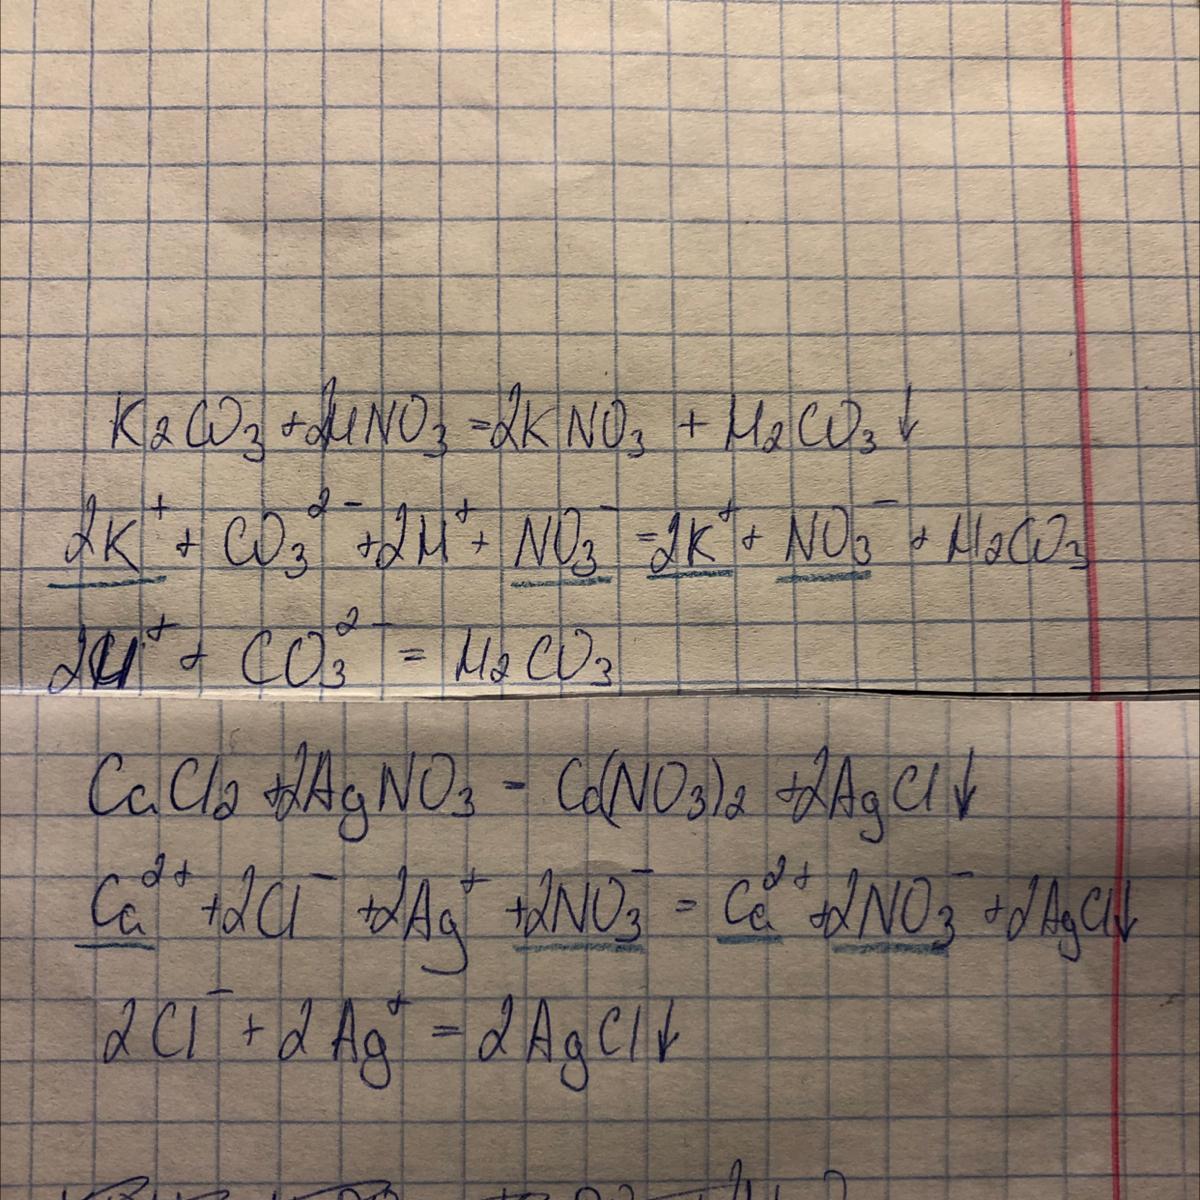 K₂CO₃ + 2HNO₃ = 2KNO₃ + H₂CO₃↓
2K⁺ + CO₃²⁻ + 2H⁺ + NO₃⁻ = 2K⁺ + NO₃⁻ + H₂CO₃
2H⁺ + CO₃²⁻ = H₂CO₃
CaCl₂ + 2AgNO₃ = Ca(NO₃)₂ + 2AgCl↓
Ca²⁺ + 2Cl⁻ + 2Ag⁺ + 2NO₃⁻ = Ca²⁺ + 2NO₃⁻ + 2AgCl↓
2Cl⁻ + 2Ag⁺ = 2AgCl↓